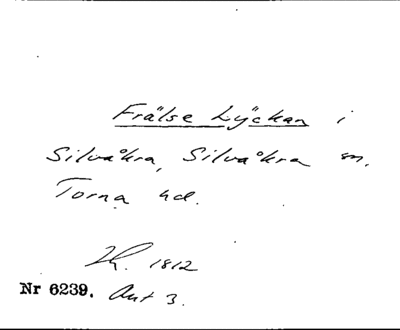 Frälse Lÿckan i
Silvåkra, Silvåkra sn.
Torna hd.
1812
Nr 6239. Akt 3.